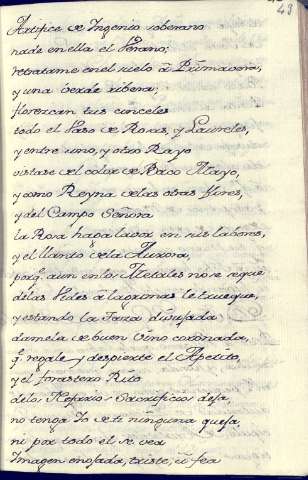 43
Artifice de Ingenio soberano
nade en ella el Verano;
retratame en el suelo à Primavera,
y una verde ribera;
florezcan tus cinceles
todo el Vaso de Rosas, y Laureles,
y entre uno, y otro Rayo
vistase del color de Baco Mayo,
y como Reyna de las otras flores,
y del Campo Señora
la Rosa haga labor en sus labores,
y el llanto de la Aurora,
porq. aun en los Metales no se seque
de las Vides à lagrimas le trueque,
y estando la Taza dibujada
damela de buen Vino coronada,
q. regale y despierte el Apetito,
y el forastero Rito
de los Nefarios Sacrificios deja,
no tenga Io de ti ninguna queja,
ni por todo el se vea
Imagen enojada, triste, ù fea